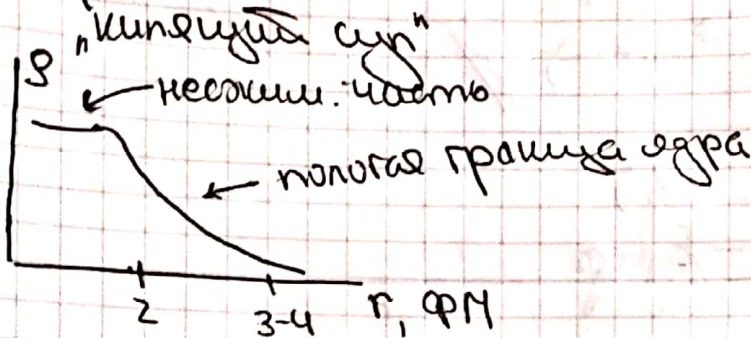 „Кипящий суп"
ρ
несжим. часть
пологая граница ядра
2
3-4
r, фм